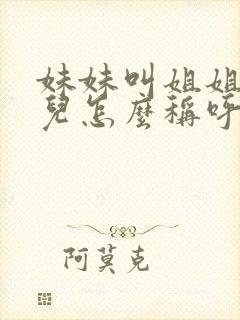 妹妹叫姐姐
兒怎麼稱呼
阿莫克